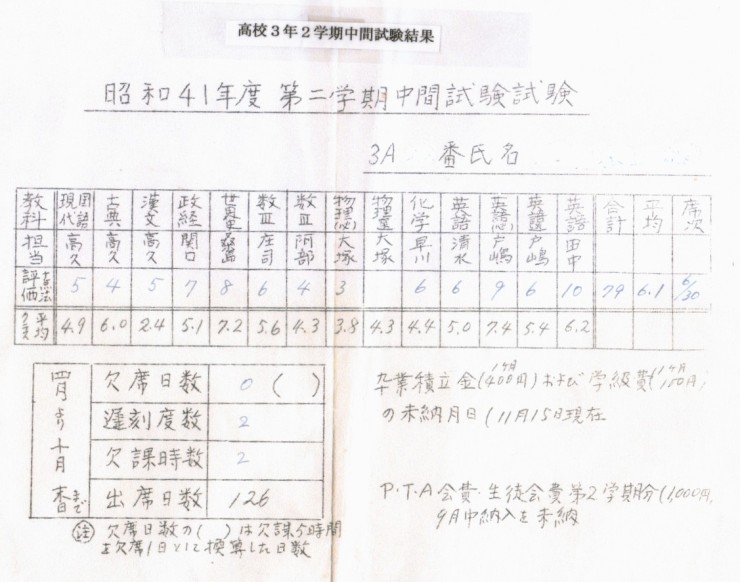 高校3年2学期中間試験結果
昭和41年度 第二学期中間試験試験
3A 番氏名
教科 現代国語 古典 漢文 政経 世界史 数Ⅲ 数Ⅲ 物理 物理 化学 英語 英語 英語 英語 合計 平均 席次
担当 高久 高久 高久 関口 桑島 庄司 阿部 大塚 大塚 早川 清水 戸嶋 戸嶋 田中
評価 十点法 5 4 5 7 8 6 4 3 6 6 9 6 10 79 6.1 6/30
クラス平均 4.9 6.0 2.4 5.1 7.2 5.6 4.3 3.8 4.3 4.4 5.0 7.4 5.4 6.2
四月より十月 日まで
欠席日数 0 ( )
遅刻度数 2
欠課時数 2
出席日数 126
注 欠席日数の( )は欠課5時間
を欠席1日として換算した日数
卒業積立金(1ヶ月400円)および学級費(1ヶ月100円)
の未納月日(11月15日現在
P・T・A会費・生徒会費第2学期分(1,000円,
9月中納入を未納